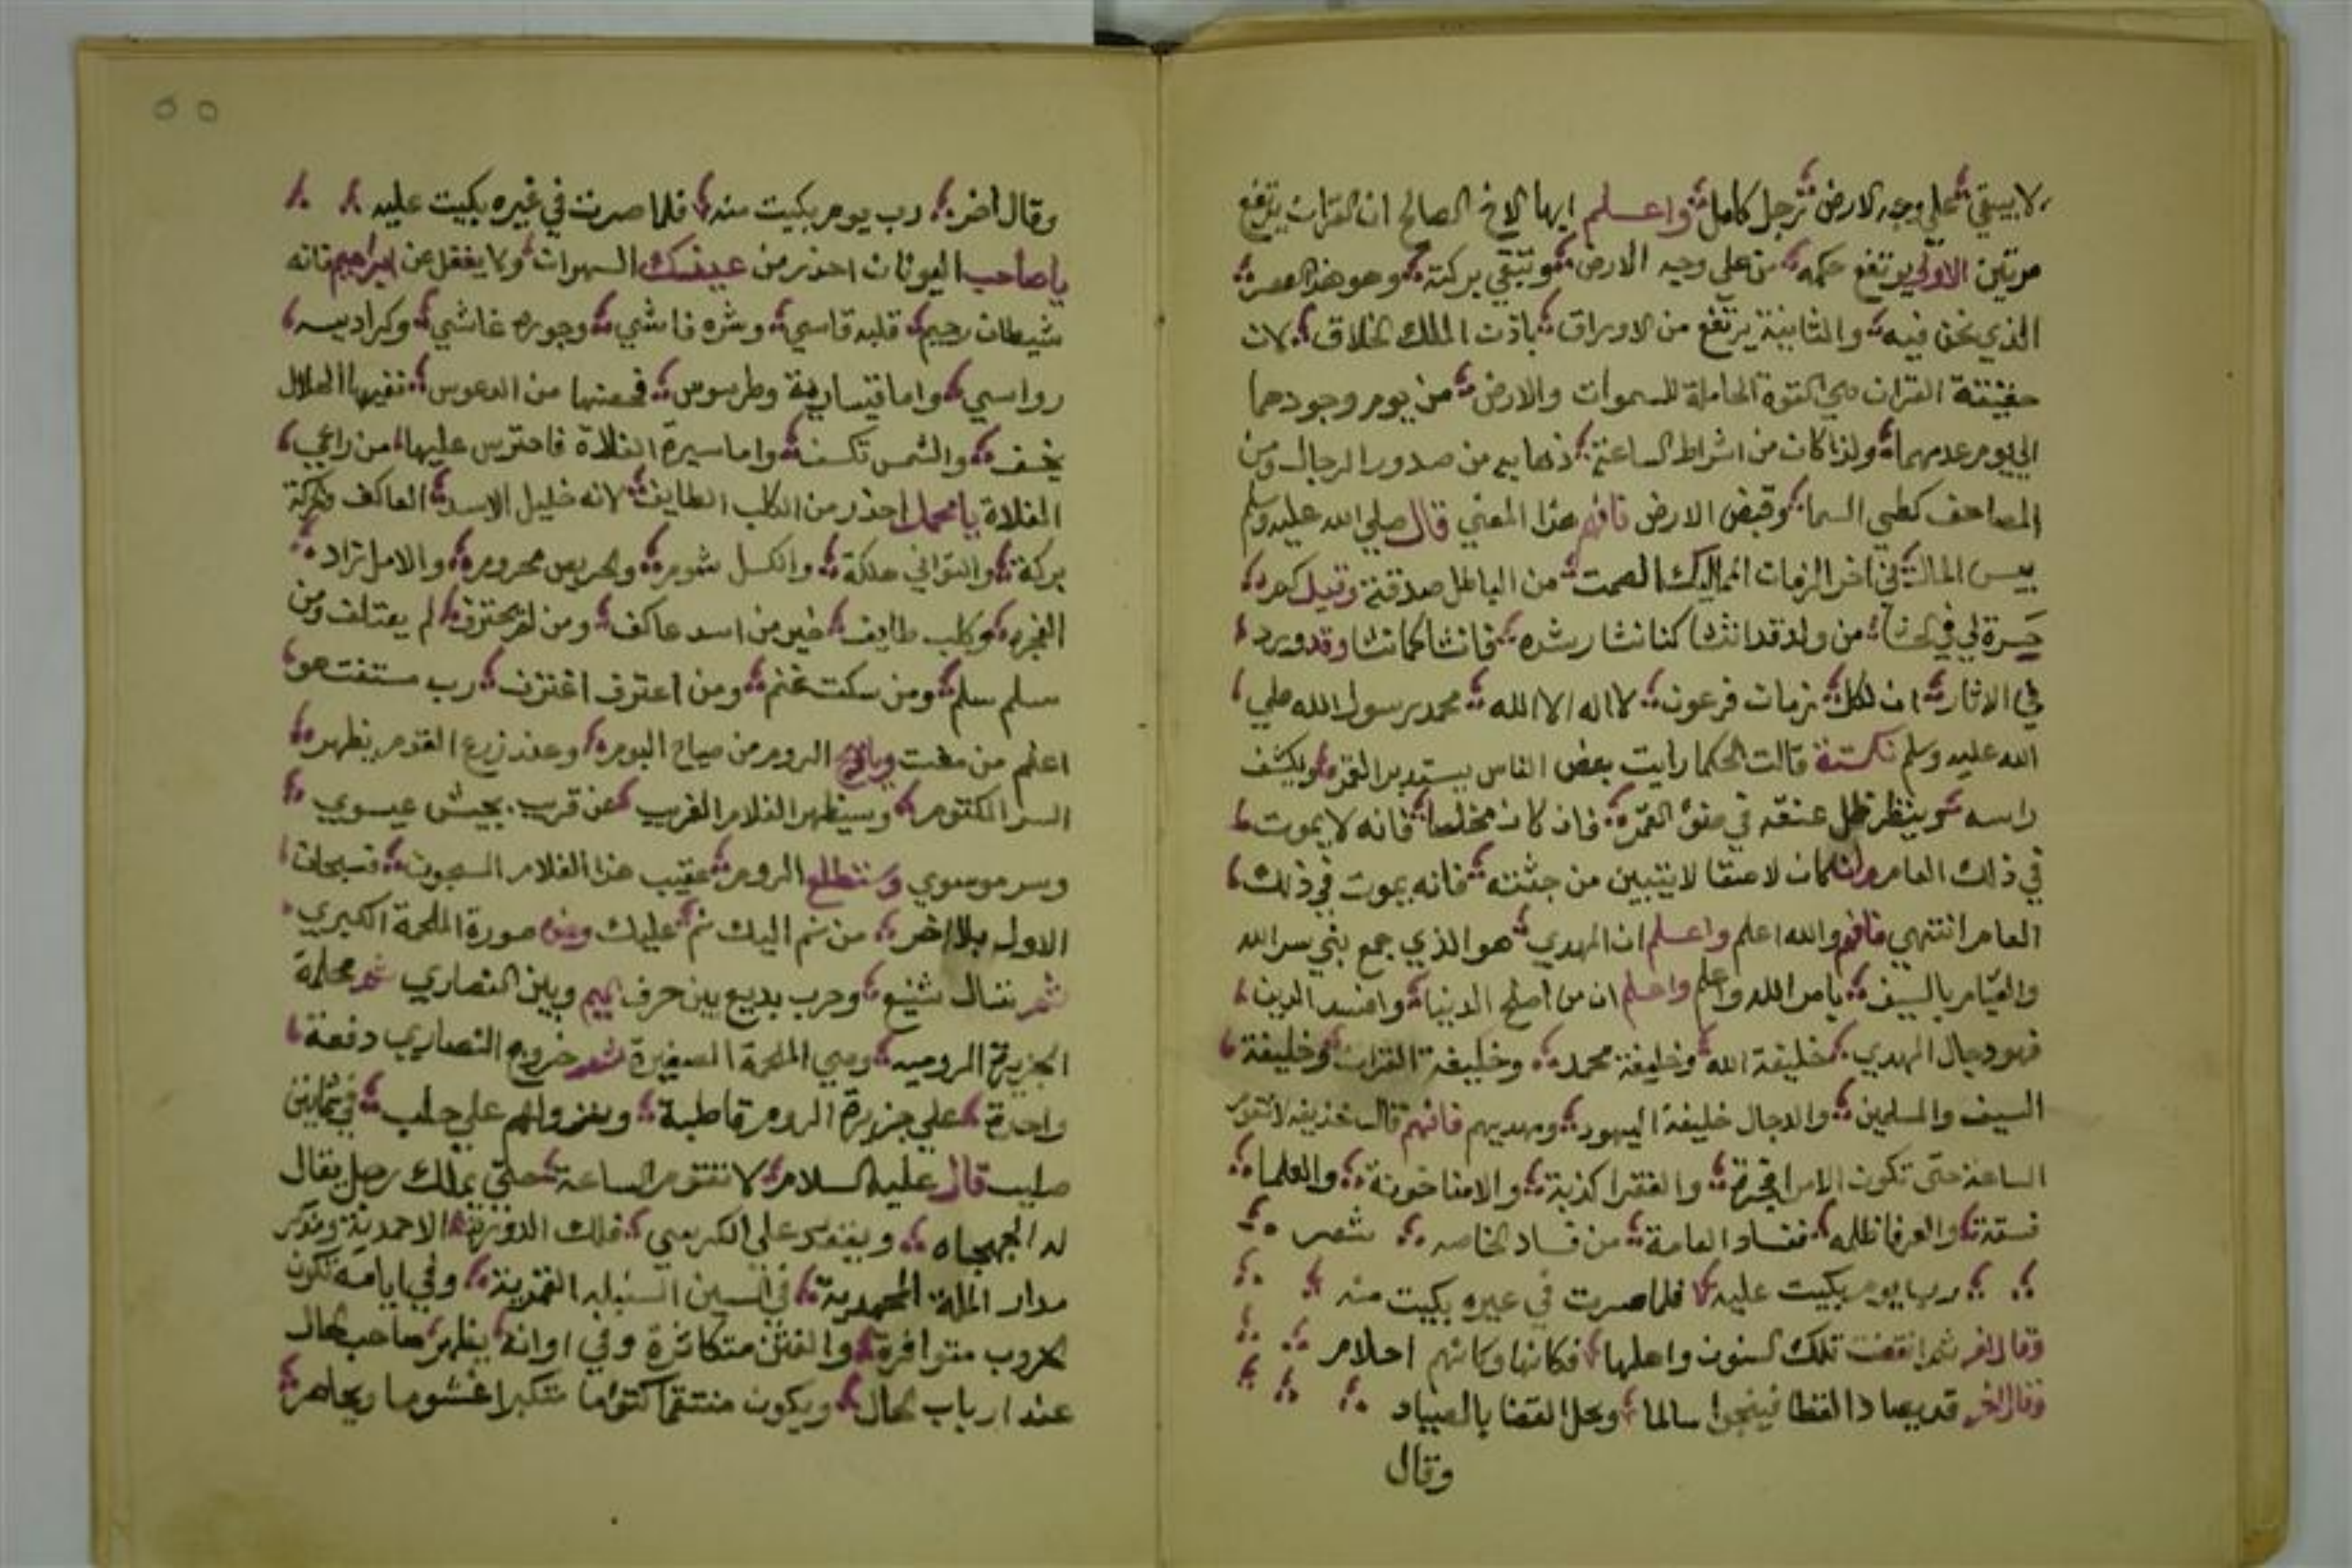 لا يبقي علي وجه الارض رجل كامل واعلم ايها الاخ الصالح ان القران يرتفع
مرتين الاولي يرتفع حكمه من علي وجه الارض وتبقي بركته وهو هذا العصر
الذي نحن فيه والثانية يرتفع من الاوراق باذن الملك الخلاق لان
حقيقة القران هي القوة الحاملة للسموات والارض من يوم وجودهما
الي يوم عدمهما ولذا كان من اشراط الساعة ذهابه من صدور الرجال ومن
المصاحف كطي السما وقبض الارض فافهم هذا المعني قال صلي الله عليه وسلم
بيس المال في اخر الزمان المماليك الصمت من الباطل صدقة وقيل كم
حسرة لي في الحشا من ولد قد انشا كنا نشا رشده فانشا كما نشا وقد ورد
في الاثار ان لكل زمان فرعون لا اله الا الله محمد رسول الله صلي
الله عليه وسلم نكتة قالت الحكما رايت بعض الناس يستدبر القمر ويكشف
راسه وينظر ظل عنقه في ضو القمر فان كان مخلصا فانه لا يموت
في ذلك العام وان كان لاصقا لا يتبين من جثته فانه يموت في ذلك
العام انتهي فافهم والله اعلم واعلم ان المهدي هو الذي جمع بني سر الله
والقيام بالسيف بامر الله واعلم واعلم ان من اصلح الدنيا وافسد الدين
فهو دجال المهدي خليفة الله وخليفة محمد وخليفة القران وخليفة
السيف والمسلمين والدجال خليفة اليهود ومهديهم فافهم قال حذيفه لا تقوم
الساعة حتي تكون الامرا فجرة والفقرا كذبة والامنا خونة والعلما
فسقة والعرفا ظلمه ففساد العامة من فساد الخاصه شعر
رب يوم بكيت عليه فلما صرت في غيره بكيت منه
وقال اخر ثم انقضت تلك السنون واهلها فكانها وكانهم احلام
وقال اخر قد يصاد القطا فينجوا سالما ويحل القضا بالصياد
وقال
٥٥
وقال اخر رب يوم بكيت منه فلما صرت في غيره بكيت عليه
يا صاحب احذر من السهوات ولا يغفل عن ابراهيم فانه
شيطان رجيم قلبه قاسي وشره فاشي وجوره غاشي وكراديسه
رواسي واما قيسارية وطرسوس من الدعوس ففيها الهلال
يخسف والشمس تكسف واما سيرة الفلاة فاحترس عليها من راعي
الفلاة يا محمل احذر من الكلب الطايف لانه خليل الاسد العاكف
بركة والتواني هلكة والكسل شوم والحريص محروم والامل
الفجره وكلب طايف خير من اسد عاكف ومن لم يحترف لم يعتلف ومن
سلم سلم ومن سكت غنم ومن اعترف اغترف رب مستفت هو
اعلم من مفت الروم من صياح البومة وعند زرع القوم يظهر
السر المكتوم وسيظهر الغلام الغريب عن قريب بجيش عيسوي
وسر موسوي وستطلع الروم عقيب هذا الغلام المسجون فسبحان
الاول بلا اخر من نم اليك نم عليك صورة الملحمة الكبري
ثم قتال شنيع وحرب بديع بين حرف الميم وبين النصاري ثم
الجزيرة الروميه وهي الملحمة الصغيرة ثم خروج النصاري دفعة
واحدة علي جزيرة الروم قاطبة ونفر والهم علي حلب في ثمانين
صليب قال عليه السلام لا تقوم الساعة حتي يملك رجل يقال
له الجهجاه ويقعد علي الكرسي فلك الدورة الاحمدية ومركز
مدار الملة المحمدية في السين القمرية وفي ايامه تكون
الحروب متوافرة والفتن متكاثرة وفي اوانه يظهر صاحب الحال
عند ارباب الحال ويكون منتقما كتوما متكبرا غشوما